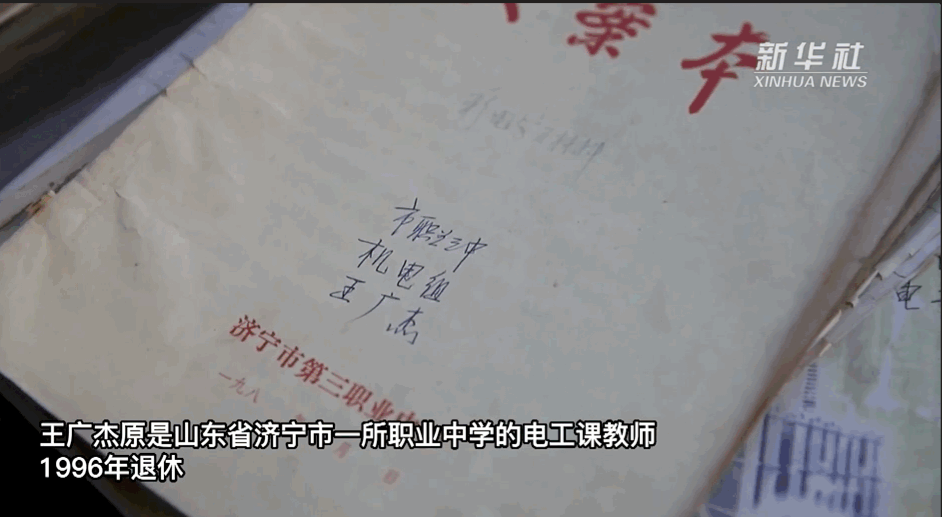 案本
新华社
XINHUA NEWS
市职三中
机电组
王广杰
济宁市第三职业中
一九八 年 月 日
电工
王广杰原是山东省济宁市一所职业中学的电工课教师
1996年退休